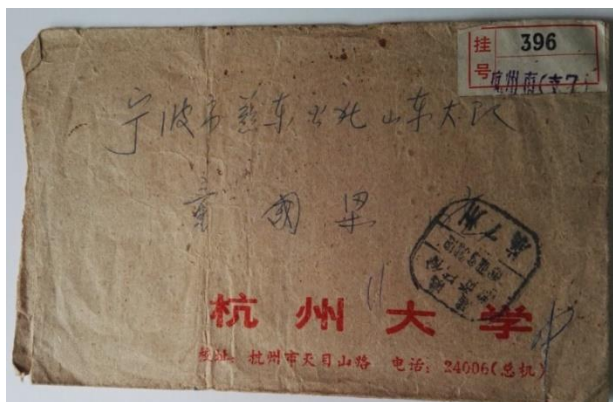 挂号 396
杭州市(支7)
宁波市慈东火北山东大队
童国梁
杭州大学
地址: 杭州市天目山路 电话: 24006(总机)